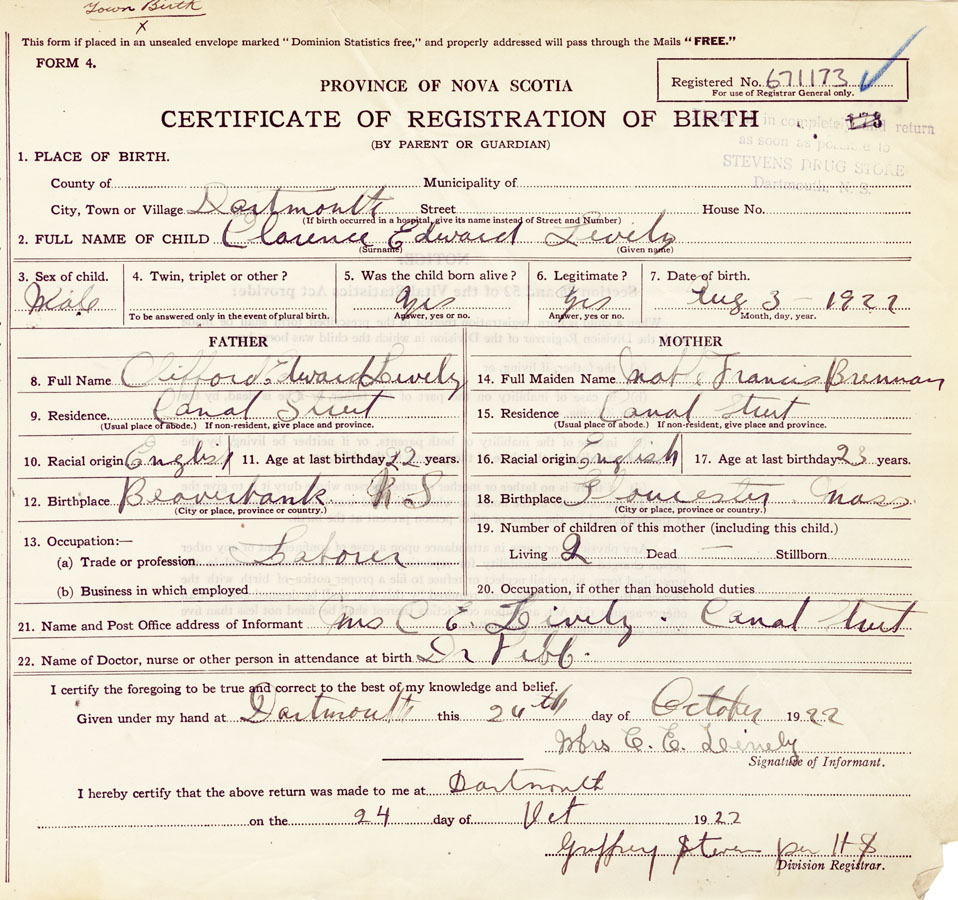 Town Birth
x
This form if placed in an unsealed envelope marked "Dominion Statistics free," and properly addressed will pass through the Mails "FREE."
FORM 4.
Registered No. 671173
For use of Registrar General only.
PROVINCE OF NOVA SCOTIA
CERTIFICATE OF REGISTRATION OF BIRTH
173
(BY PARENT OR GUARDIAN)
in complete and return
as soon as possible to
STEVENS DRUG STORE
Dartmouth, N. S.
1. PLACE OF BIRTH.
County of Municipality of
City, Town or Village Dartmouth Street House No.
(If birth occurred in a hospital, give its name instead of Street and Number)
2. FULL NAME OF CHILD Clarence Edward Lively
(Surname) (Given name)
3. Sex of child. 4. Twin, triplet or other? 5. Was the child born alive? 6. Legitimate? 7. Date of birth.
Male Yes Yes Aug 3 - 1922
To be answered only in the event of plural birth. Answer, yes or no. Answer, yes or no. Month, day, year.
FATHER MOTHER
8. Full Name Clifford Edward Lively 14. Full Maiden Name Francis Brennan
9. Residence. Canal Street 15. Residence Canal Street
(Usual place of abode.) If non-resident, give place and province. (Usual place of abode.) If non-resident, give place and province.
10. Racial origin English 11. Age at last birthday 22 years. 16. Racial origin English 17. Age at last birthday 23 years.
12. Birthplace Beaverbank N S 18. Birthplace Gloucester Mass
(City or place, province or country.) (City or place, province or country.)
13. Occupation:— 19. Number of children of this mother (including this child.)
(a) Trade or profession Labourer Living 2 Dead — Stillborn
(b) Business in which employed 20. Occupation, if other than household duties
21. Name and Post Office address of Informant Mrs C E. Lively. Canal Street
22. Name of Doctor, nurse or other person in attendance at birth Dr
I certify the foregoing to be true and correct to the best of my knowledge and belief.
Given under my hand at Dartmouth this 24th day of October 1922
Mrs C. E. Lively
Signature of Informant.
I hereby certify that the above return was made to me at Dartmouth
on the 24 day of Oct 1922
Stevens per H S
Division Registrar.